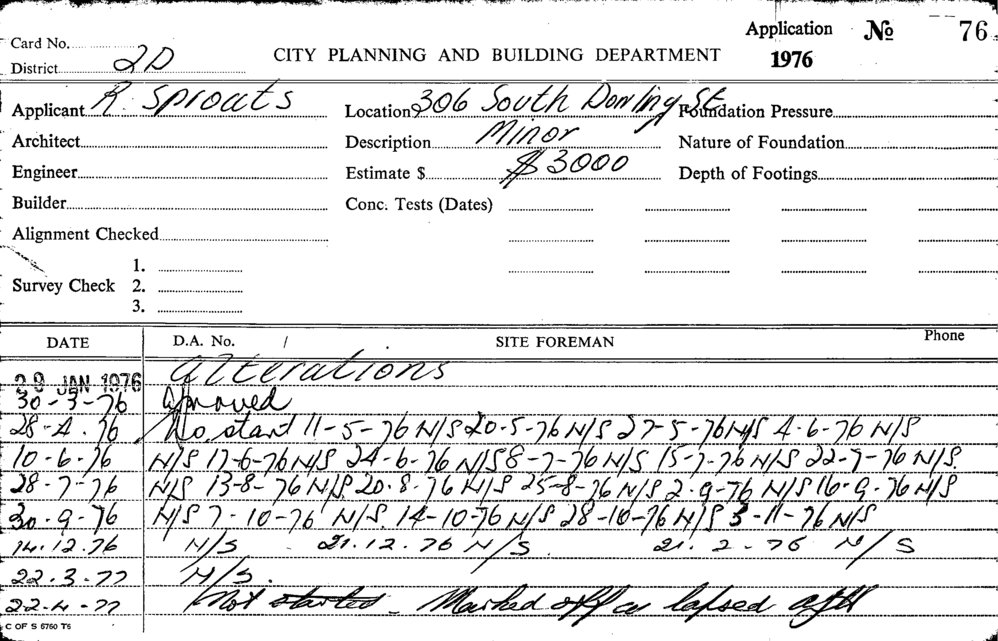 Application No 76
Card No.
1976
District 2D
CITY PLANNING AND BUILDING DEPARTMENT
Applicant R. Sprouts Location 306 South Dowling St Foundation Pressure
Architect Description Minor Nature of Foundation
Engineer Estimate $ $3000 Depth of Footings
Builder Conc. Tests (Dates)
Alignment Checked
1.
Survey Check 2.
3.
DATE D.A. No. / SITE FOREMAN Phone
29 JAN 1976 Alterations
30-3-76 Aproved
28-4.76 No start 11-5-76 N/S 20-5-76 N/S 27-5-76 N/S 4-6-76 N/S
10-6-76 N/S 17-6-76 N/S 24-6-76 N/S 8-7-76 N/S 15-7-76 N/S 22-7-76 N/S.
28-7-76 N/S 13-8-76 N/S. 20.8.76 N/S 25-8-76 N/S 2.9-76 N/S 16.9.76 N/S
30.9-76 N/S 7-10-76 N/S. 14-10-76 N/S 28-10-76 N/S 3-11-76 N/S
14.12.76 N/S . 21.12.76 N/S. 21.2-76 N/S
22.3-77 N/S.
22-4-77 Not started - Marked off as lapsed
C OF S 6760 T6